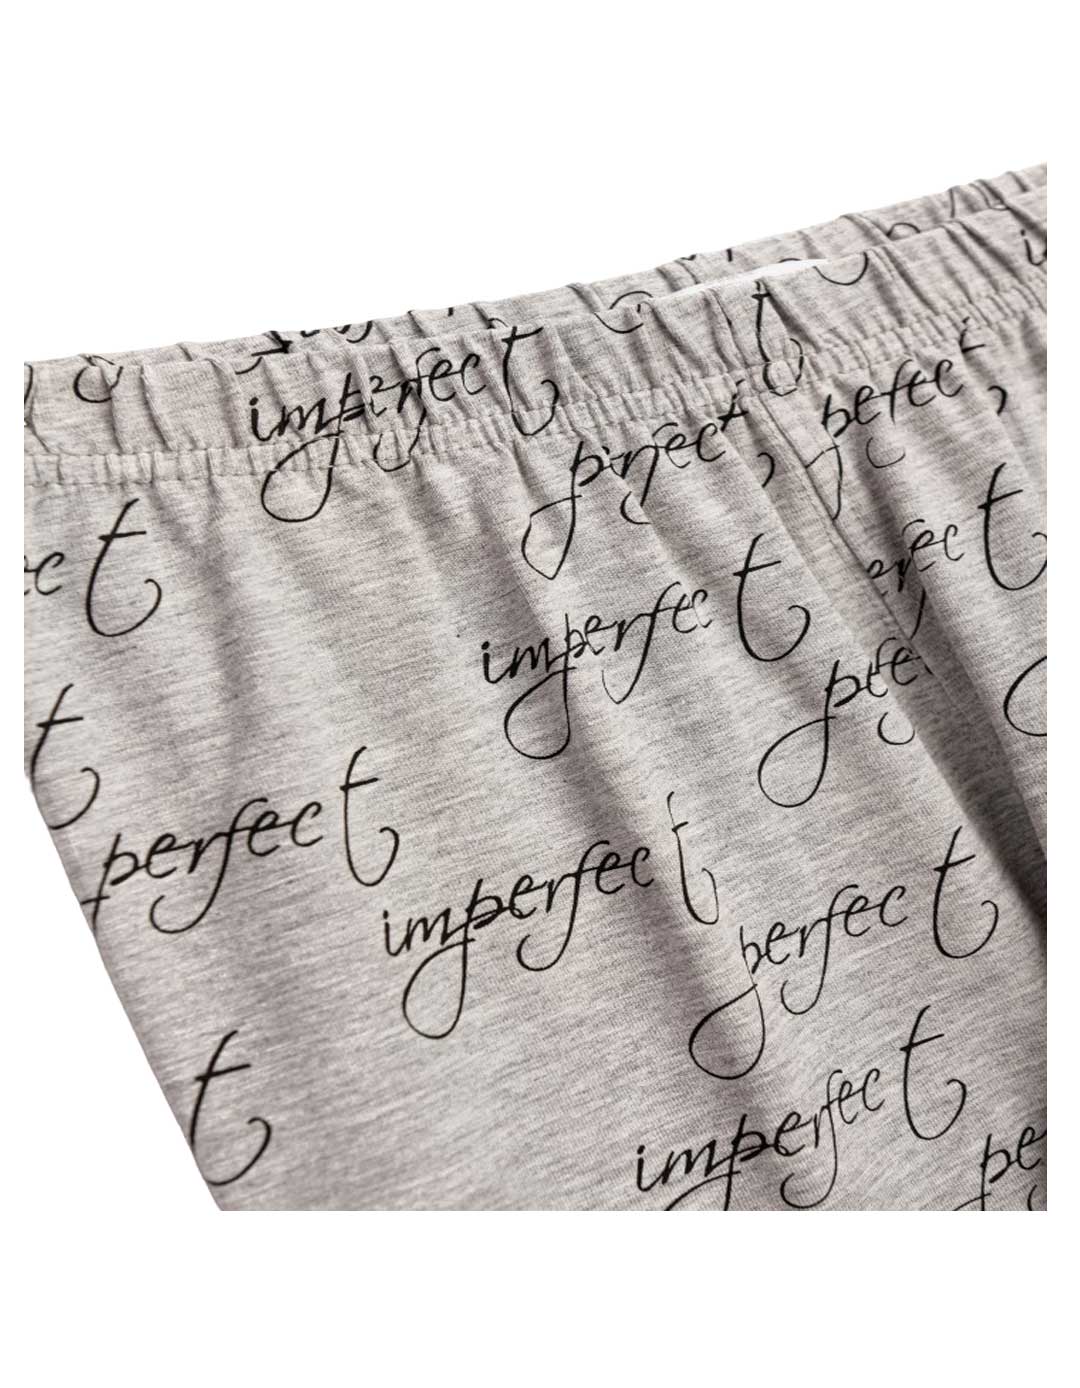 imperfect
perfect
perfect
imperfect
perfect
imperfect
perfect
imperfect